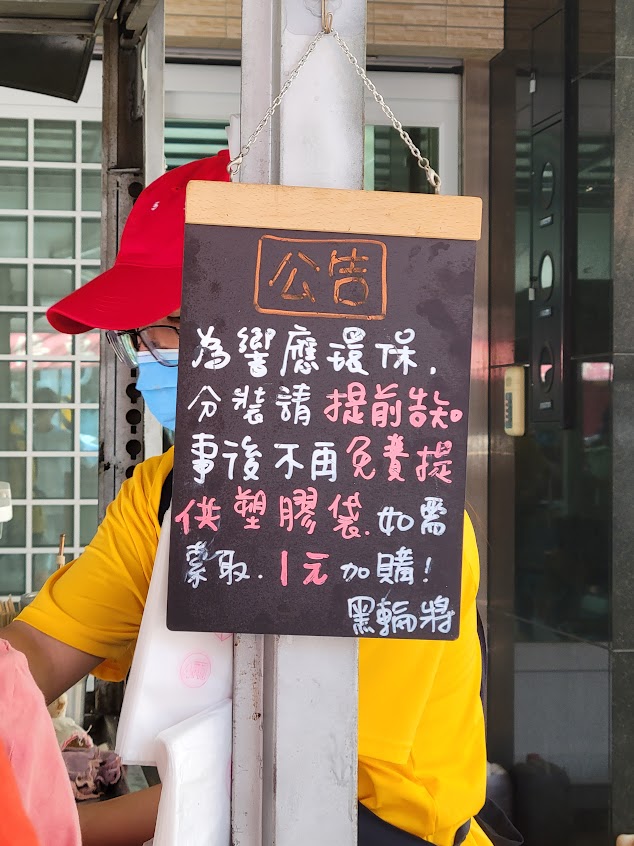 公告
為響應環保，
分裝請提前告知。
事後不再免費提
供塑膠袋.如需
索取.1元加購！
黑輪將